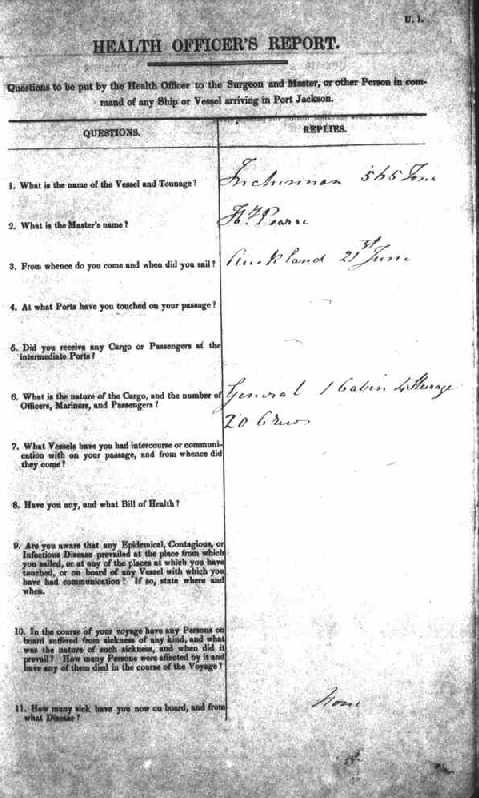 U. 1.
HEALTH OFFICER'S REPORT.
Questions to be put by the Health Officer to the Surgeon and Master, or other Person in com-
mand of any Ship or Vessel arriving in Port Jackson.
QUESTIONS.
REPLIES.
1. What is the name of the Vessel and Tonnage?
565 Tons
2. What is the Master's name?
Pearse
3. From whence do you come and when did you sail?
Auckland 21st June
4. At what Ports have you touched on your passage?
5. Did you receive any Cargo or Passengers at the
intermediate Ports?
6. What is the nature of the Cargo, and the number of
Officers, Mariners, and Passengers?
General 1 Cabin 4 Steerage
20 Crew
7. What Vessels have you had intercourse or communi-
cation with on your passage, and from whence did
they come?
8. Have you any, and what Bill of Health?
9. Are you aware that any Epidemical, Contagious, or
Infectious Disease prevailed at the place from which
you sailed, or at any of the places at which you have
touched, or on board of any Vessel with which you
have had communication? If so, state where and
when.
10. In the course of your voyage have any Persons on
board suffered from sickness of any kind, and what
was the nature of such sickness, and when did it
prevail? How many Persons were affected by it and
have any of them died in the course of the Voyage?
11. How many sick have you now on board, and from
what Disease?
None